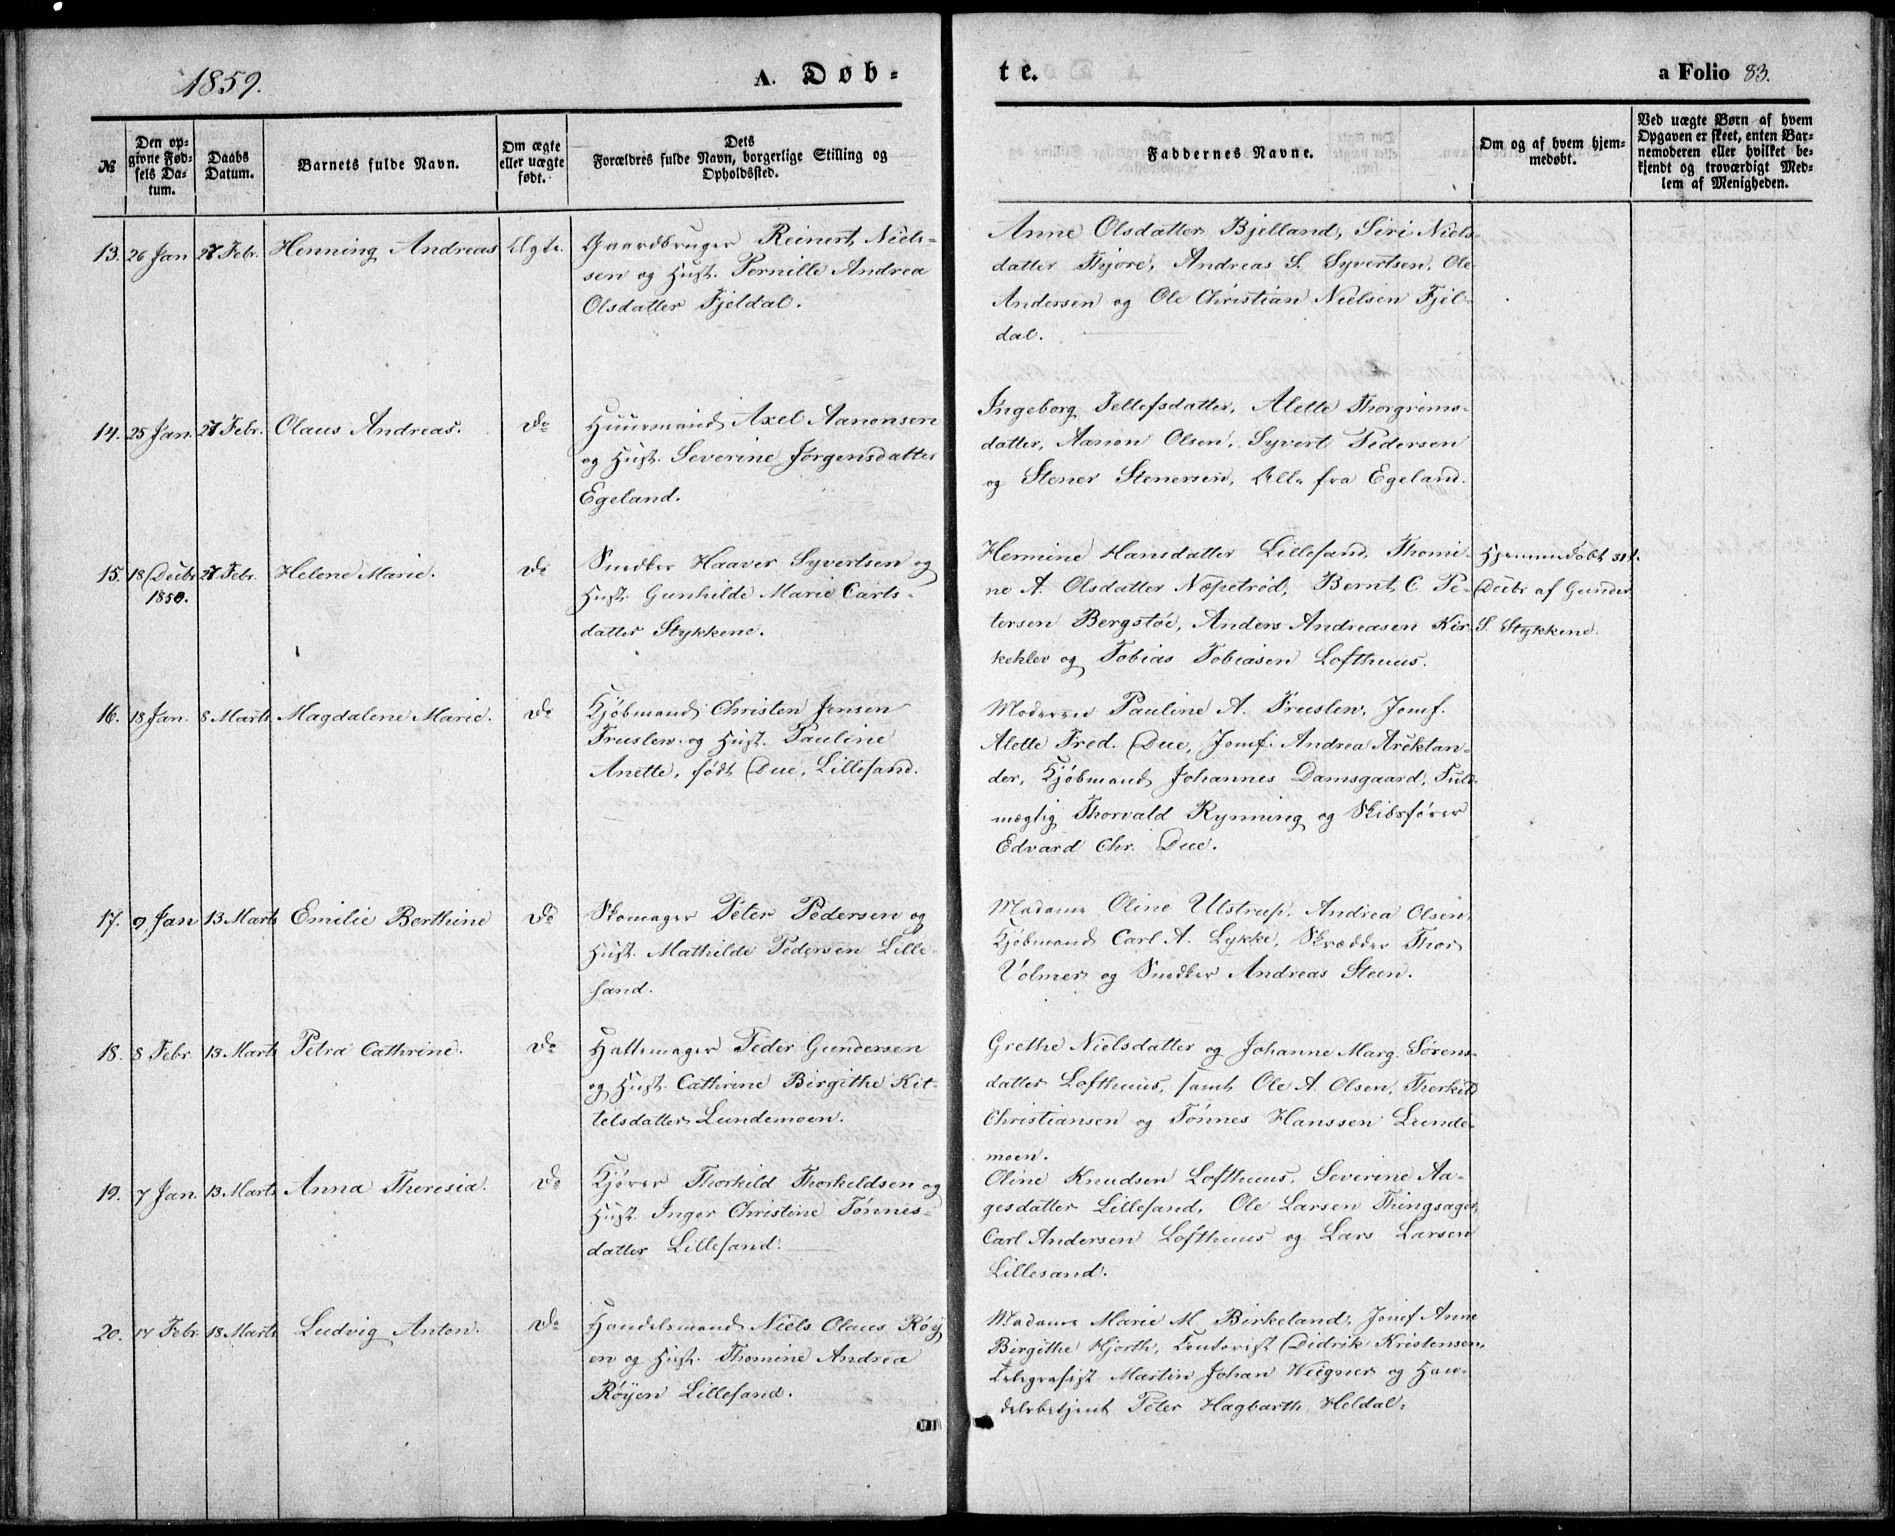 1859.
A. Døb-
te.
a Folio 83.
№
Den op-
givne Fød-
sels Da-
tum.
Daabs
Datum.
Barnets fulde Navn.
Om ægte
eller uægte
født.
Dets
Forældres fulde Navn, borgerlige Stilling og
Opholdssted.
Faddernes Navne.
Om og af hvem hjem-
medøbt.
Ved uægte Børn af hvem
Opgaven er skeet, enten Bar-
nemoderen eller hvilket be-
kjendt og troværdigt Med-
lem af Menigheden.
13. 26 Jan 27 Febr. Henning Andreas Ægte.
Gaardbruger Reinert Niels-
sen og Hust. Pernille Andrea
Olsdatter Fjeldal.
Anne Olsdatter Bjelland, Siri Niels-
datter Thjore, Andreas S. Syvertsen, Ole
Andersen og Ole Christian Nielsen Fjel-
dal.
14. 25 Jan. 27 Febr. Olaus Andreas. Do
Huusmand Axel Aanonsen
og Hust. Severine Jørgensdatter
Egeland.
Ingeborg Tellefsdatter, Alette Thorgrims-
datter, Aanon Olsen, Syvert Pedersen
og Stener Stenersen, Alle fra Egeland.
15. 18 Decbr 27 Febr. Helene Marie. Do
1858.
Snedker Haaver Syvertsen og
Hust. Gunhilde Marie Carls-
datter Stykkene.
Hermine Hansdatter Lillesand, Thomi-
ne A. Olsdatter Næpetrød, Bernt C Pe-
tersen Bergstøe, Anders Andreasen Kir-
kehlev og Tobias Tobiasen Lofthuus.
Hjemmedøbt 31t.
Decbr af Gunder
S. Stykkene.
16. 18 Jan. 8 Marts Magdalene Marie. Do
Kjøbmand Christen Jensen
Fruslev og Hust. Pauline
Anette, født Due, Lillesand.
Moderen Pauline A. Fruslew, Jomf.
Alette Fred. Due, Jomf. Andrea Arcktan-
der, Kjøbmand Johannes Damsgaard, Fuld-
mægtig Thorvald Rynning og Skibsfører
Edvard Chr. Due.
17. 9 Jan 13 Marts Emilie Berthine Do
Skomager Peter Pedersen og
Hust. Mathilde Pedersen Lille-
sand.
Madame Oline Ulstrup, Andrea Olsen,
Kjøbmand Carl A. Lykke, Skrædder Thor
Volmer og Snedker Andreas Steen.
18. 8 Febr 13 Marts Petra Cathrine. Do
Hattemager Peder Gundersen
og Hust. Cathrine Birgithe Kit-
telsdatter Lundemoen.
Grethe Nielsdatter og Johanne Marg. Sørens-
datter Lofthuus, samt Ole A. Olsen, Therkild
Christiansen og Tønnes Hanssen Lunde-
moen.
19. 7 Jan. 13 Marts Anna Theresia. Do
Kjører Thorkild Thorkeldsen og
Hust. Inger Christine Tønnes-
datter Lillesand.
Oline Knudsen Lofthuus, Severine Aa-
gesdatter Lillesand, Ole Larsen Thingsager,
Carl Andersen Lofthuus og Lars Larsen
Lillesand.
20. 14 Febr. 18 Marts Ludvig Anton. Do
Handelsmand Niels Olaus Røy-
en og Hust. Thomine Andrea
Røyen Lillesand.
Madame Marie M. Birkeland, Jomf Anne
Birgithe Hjorth, Contorist Didrik Kristensen,
Telegrafist Martin Johan Weigner og Han-
delsbetjent Peter Hagbarth Heldal.